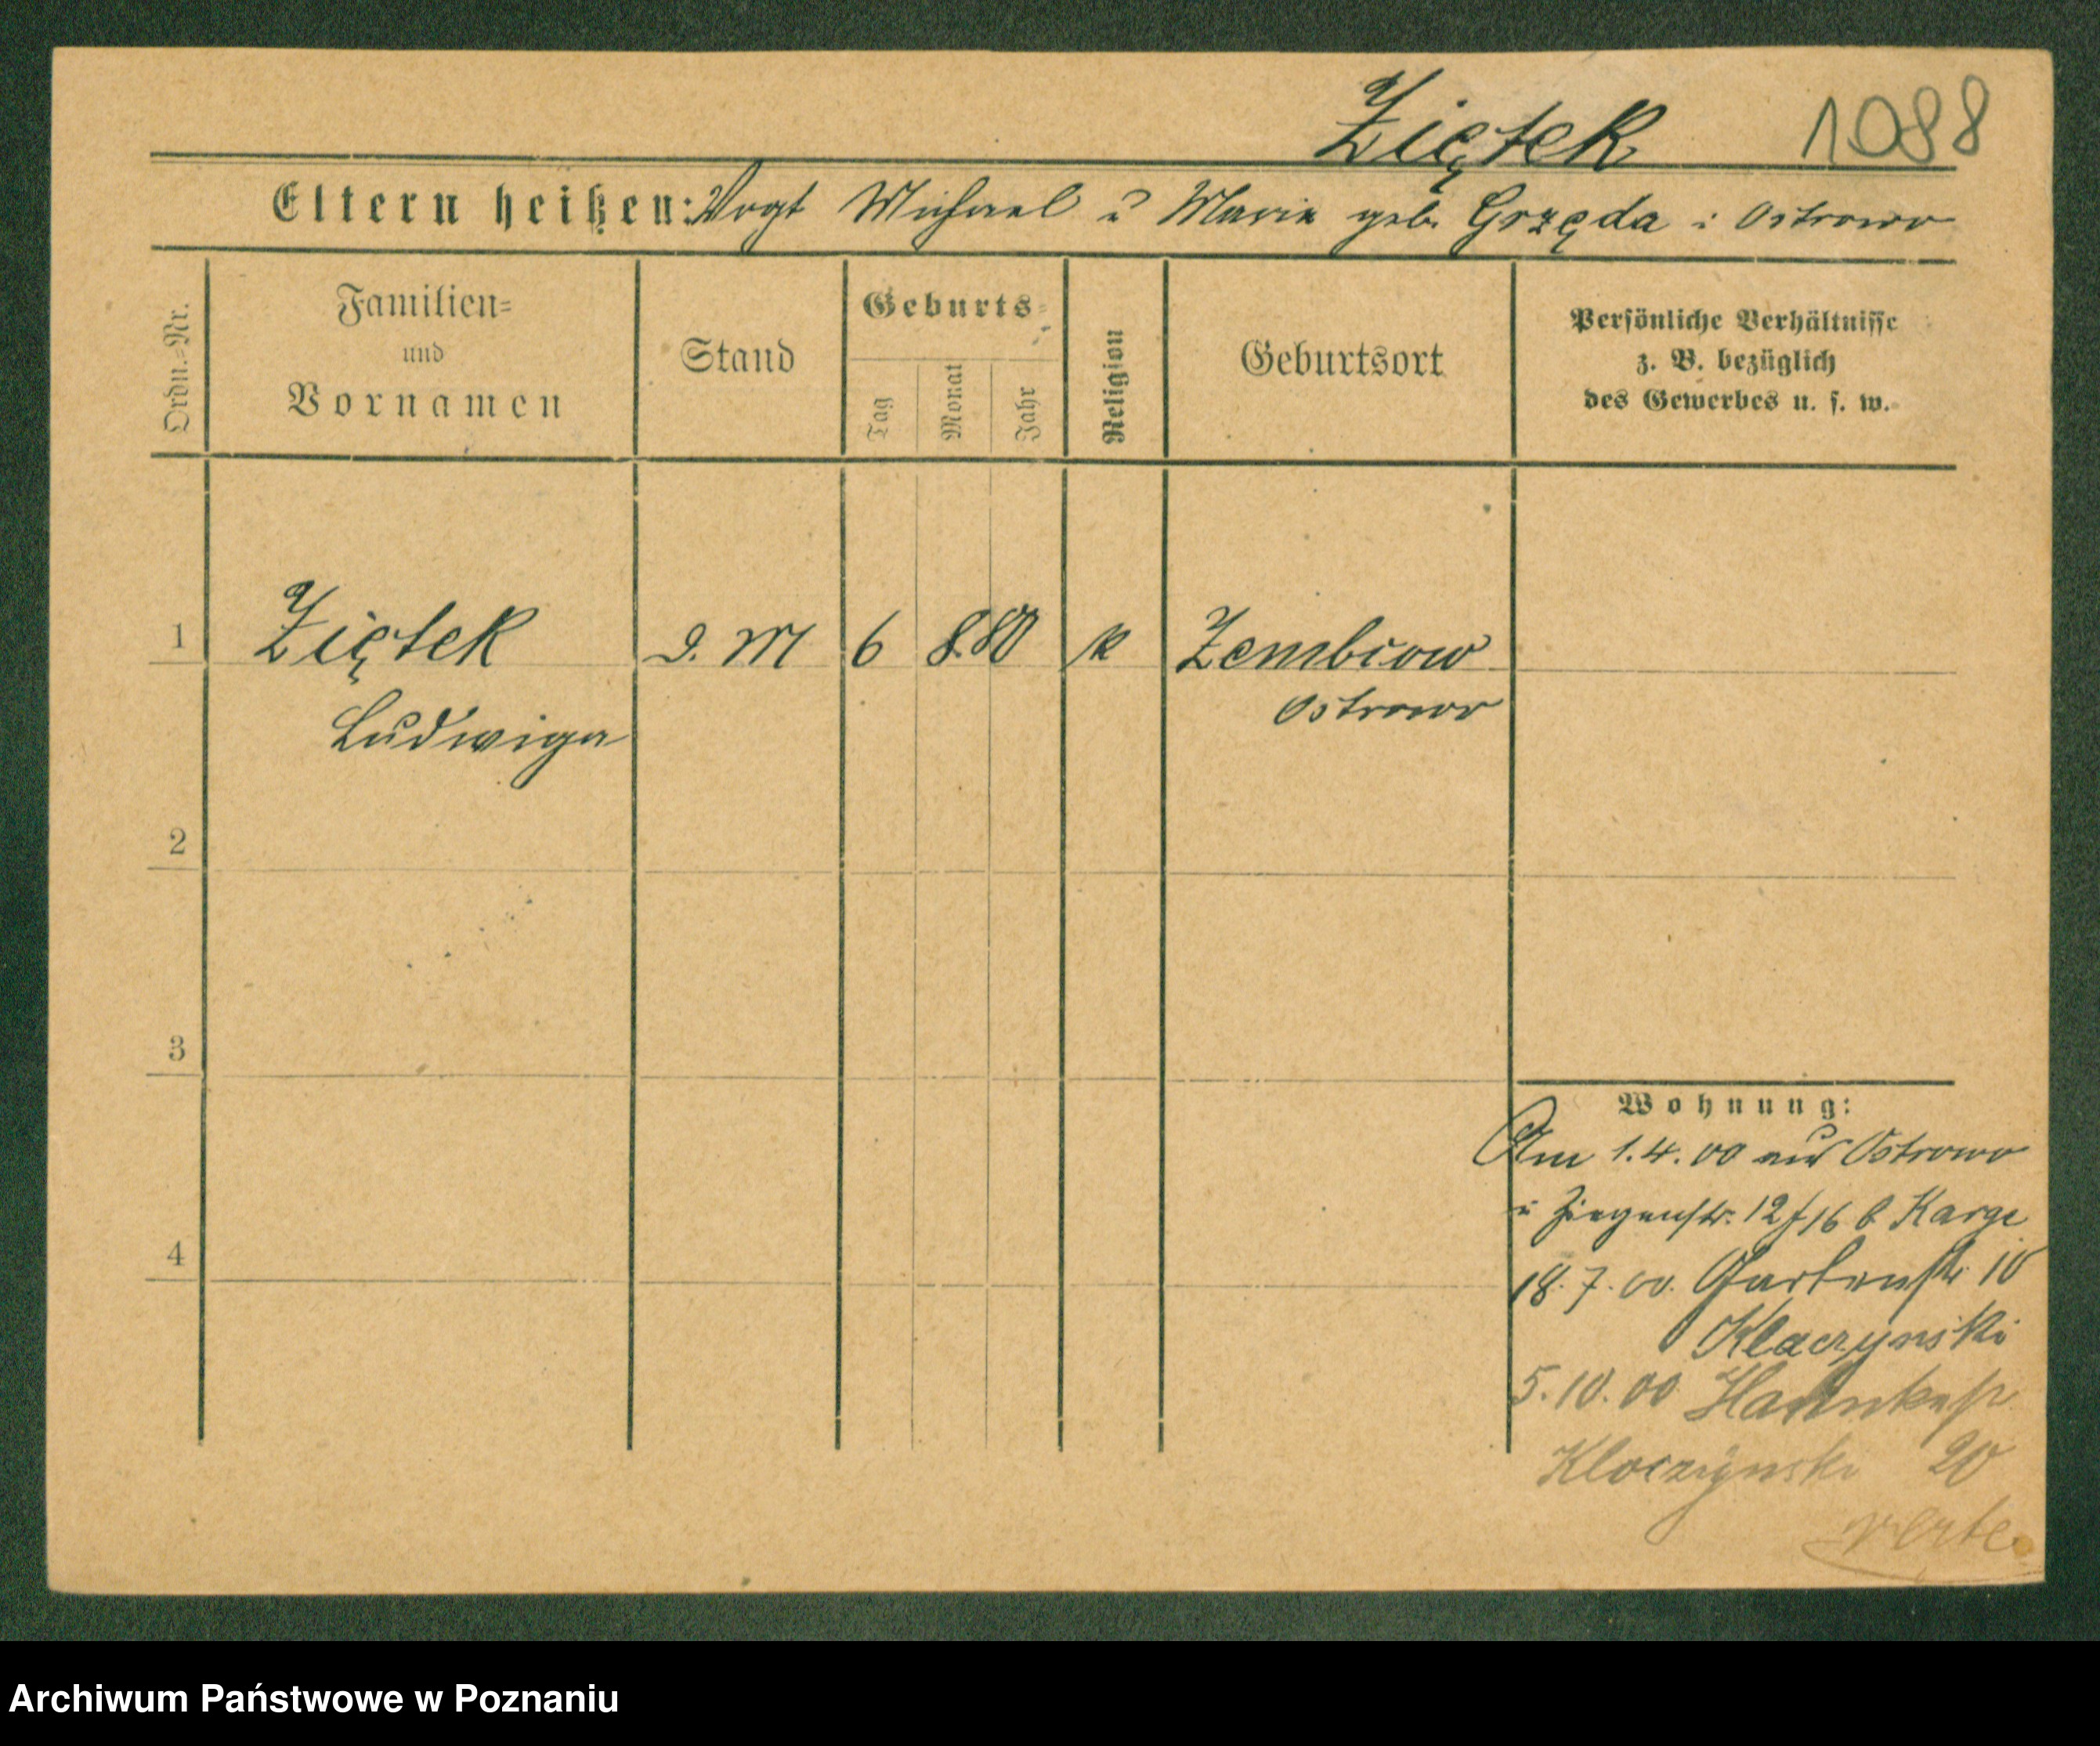 Ziętek 1088
Eltern heißen: Vogt Michael u Maria geb. Grzęda i Ostrowo
Ordn.=Nr.
Familien=
und
Vornamen
Stand
Geburts=
Tag
Monat
Jahr
Religion
Geburtsort
Persönliche Verhältnisse
z. B. bezüglich
des Gewerbes u. s. w.
1 Ziętek D. M 6 8. 80 k Zembcow
Ludwiga Ostrowo
2
3
4
Wohnung:
Am 1.4.00 aus Ostrowo
n Ziegenstr. 12/16 b Karge
18.7.00. Gartenstr 10
Klaczynski
5.10.00
Kloczynski 20
verte
Archiwum Państwowe w Poznaniu